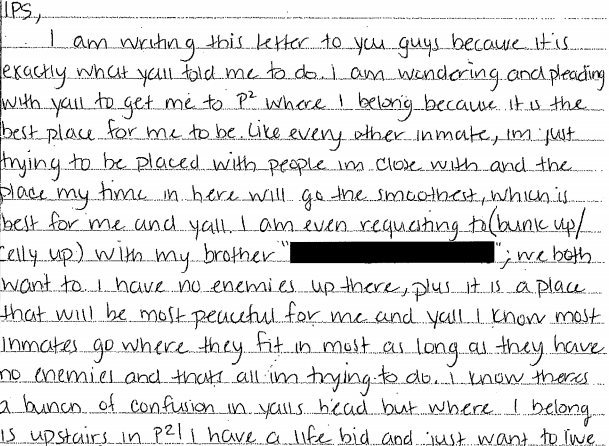 IPS,
I am writing this letter to you guys because it is
exactly what yall told me to do. I am wondering and pleading
with yall to get me to P² where I belong because it is the
best place for me to be. Like every other inmate, im just
trying to be placed with people im close with and the
place my time in here will go the smoothest, which is
best for me and yall. I am even requesting to (bunk up/
celly up) with my brother " "; we both
want to I have no enemies up there, plus it is a place
that will be most peaceful for me and yall I know most
inmates go where they fit in most as long as they have
no enemies and thats all im trying to do. I know theres
a bunch of confusion in yalls head but where I belong
is upstairs in P2! I have a life bid and just want to live